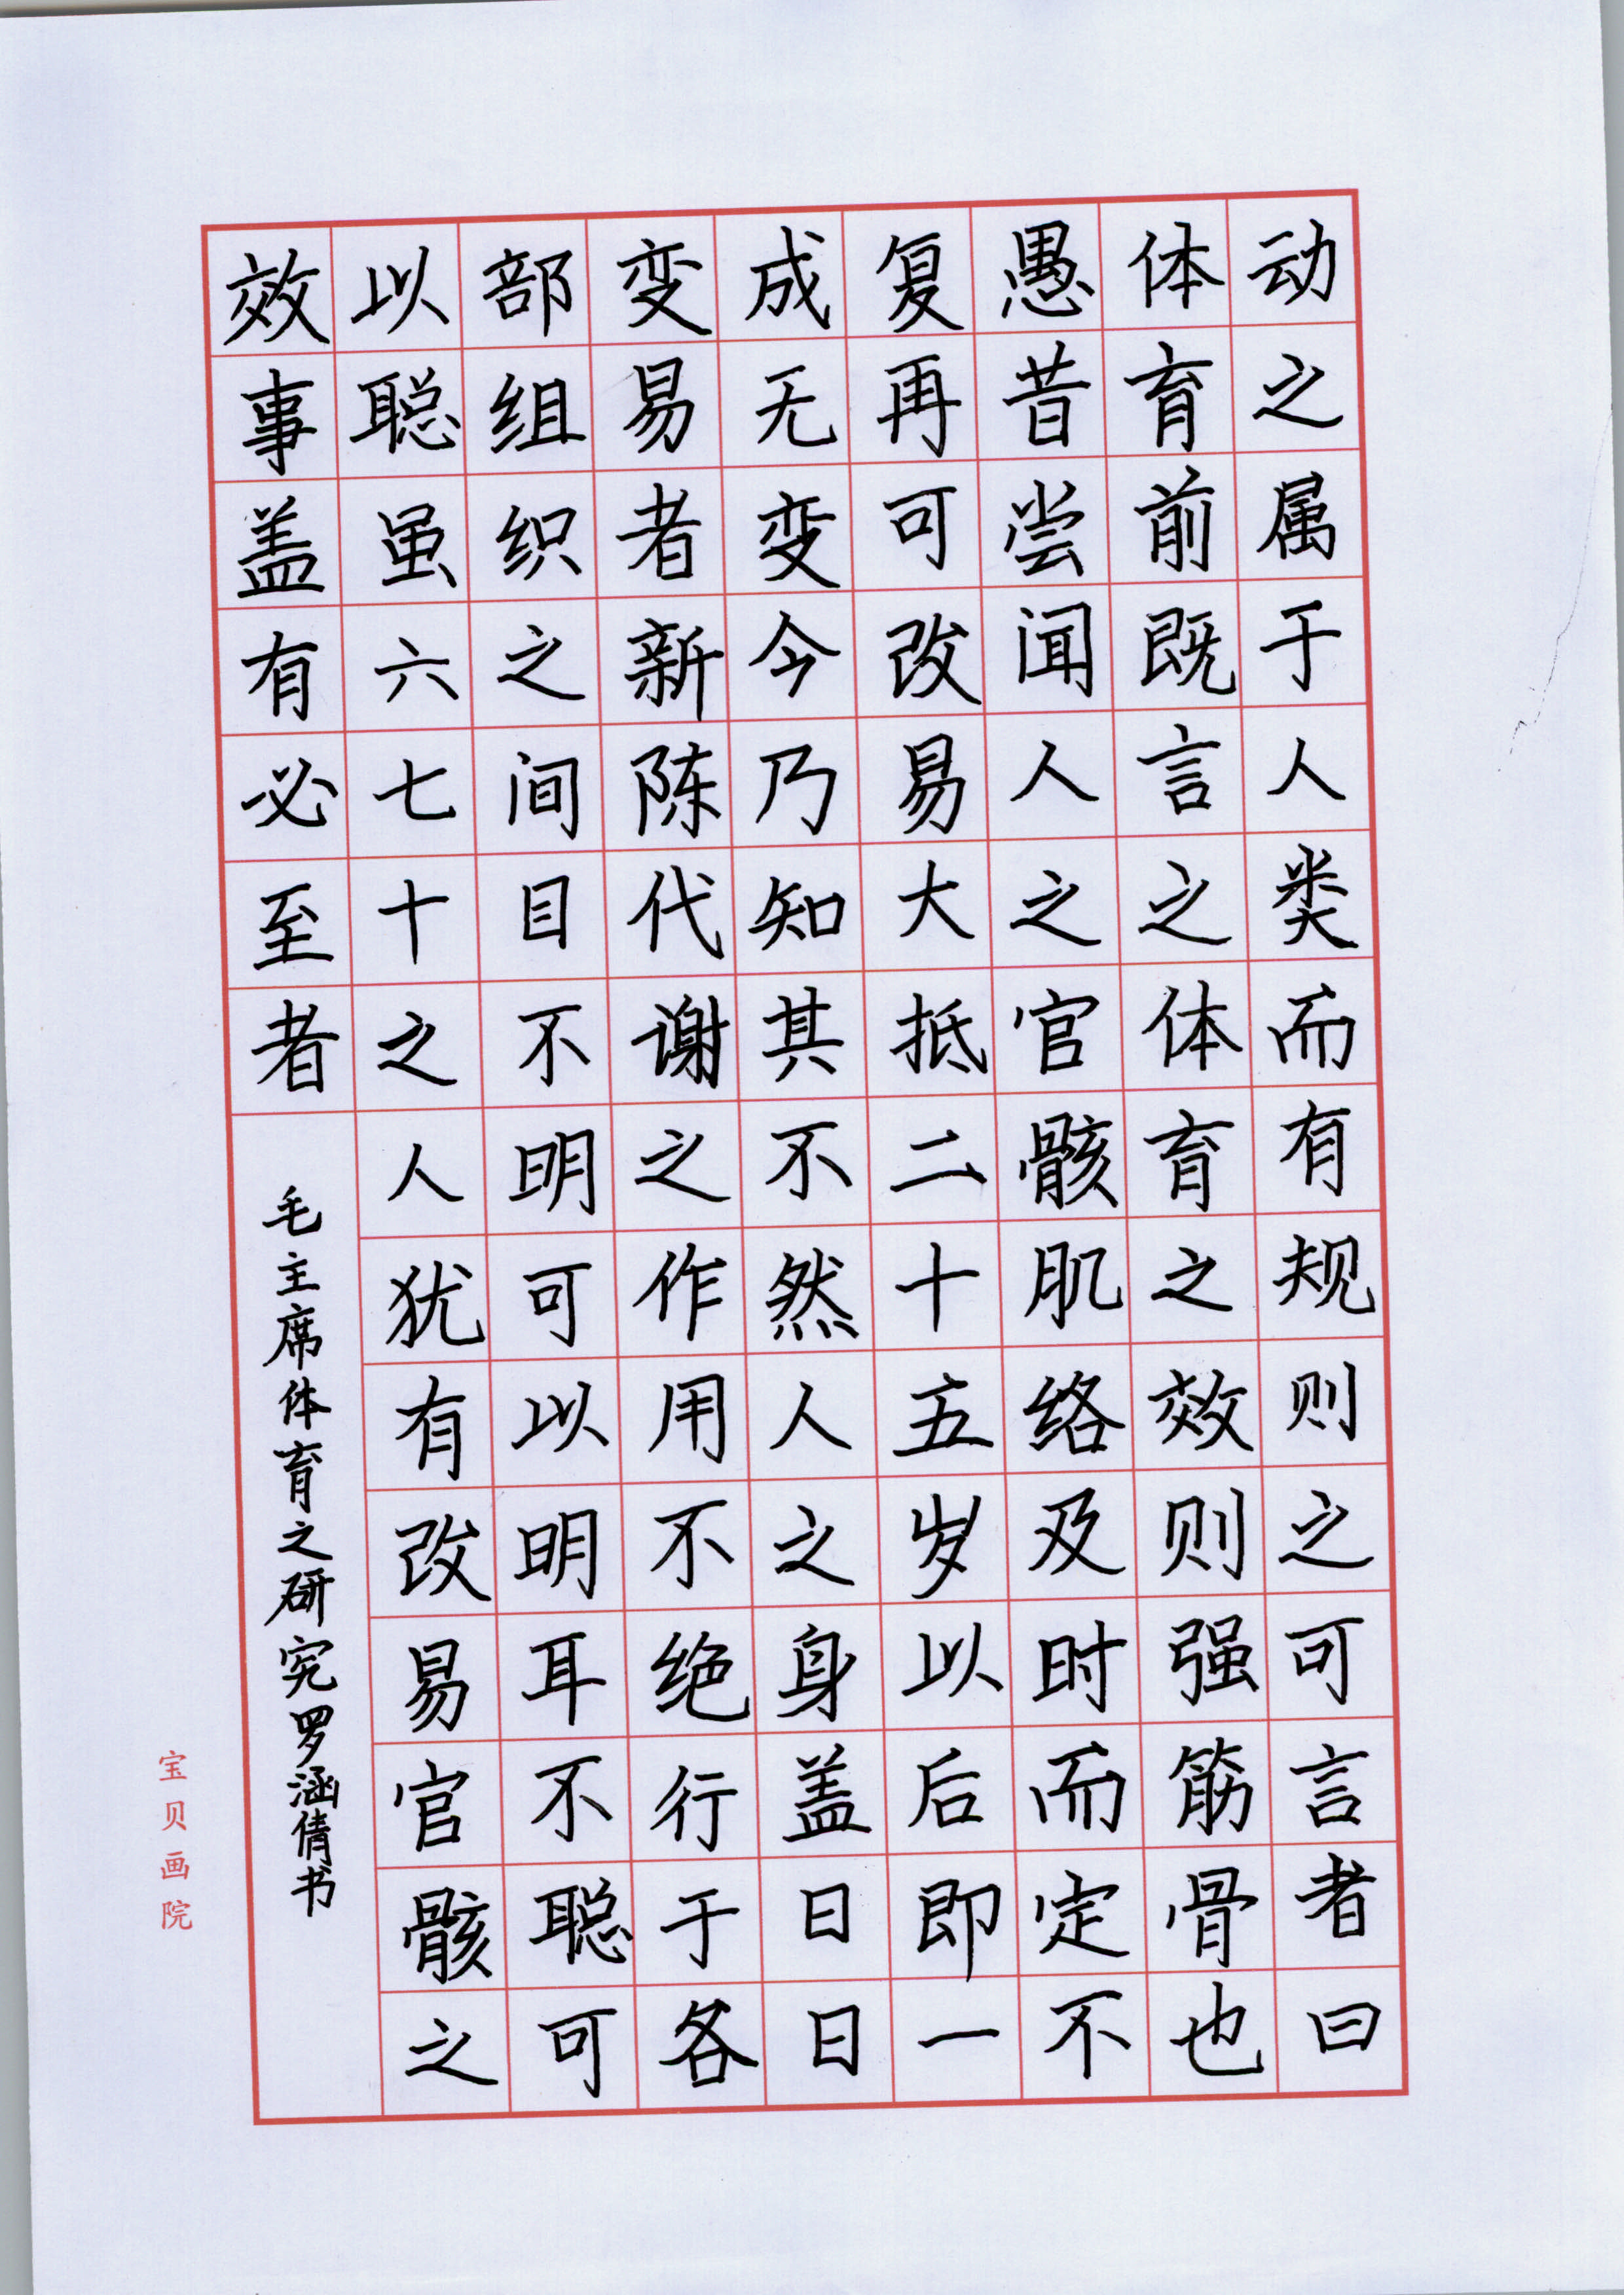 动之属于人类而有规则之可言者曰
体育前既言之体育之效则强筋骨也
愚昔尝闻人之官骸肌络及时而定不
复再可改易大抵二十五岁以后即一
成无变今乃知其不然人之身盖日日
变易者新陈代谢之作用不绝行于各
部组织之间目不明可以明耳不聪可
以聪虽六七十之人犹有改易官骸之
效事盖有必至者
毛主席体育之研究罗涵倩书
宝贝画院